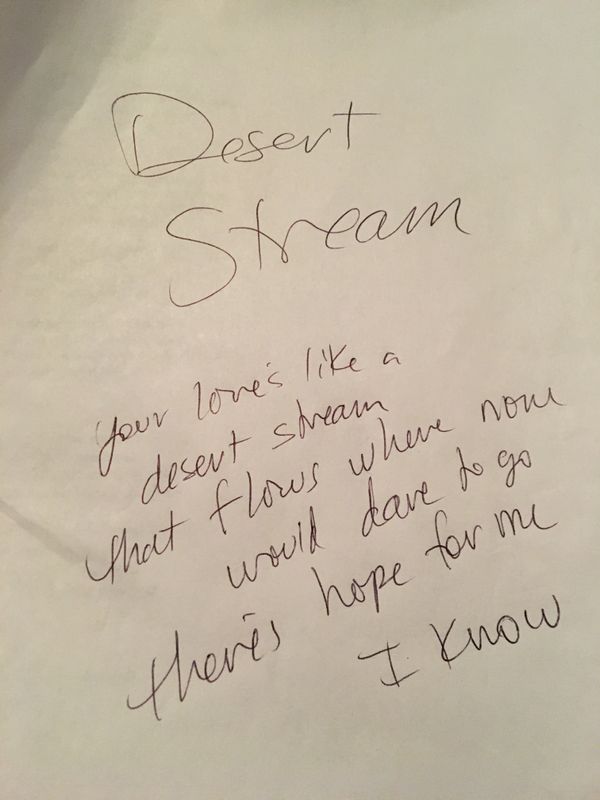 Desert
Stream
your love's like a
desert stream
that flows where none
would dare to go
there's hope for me
I know